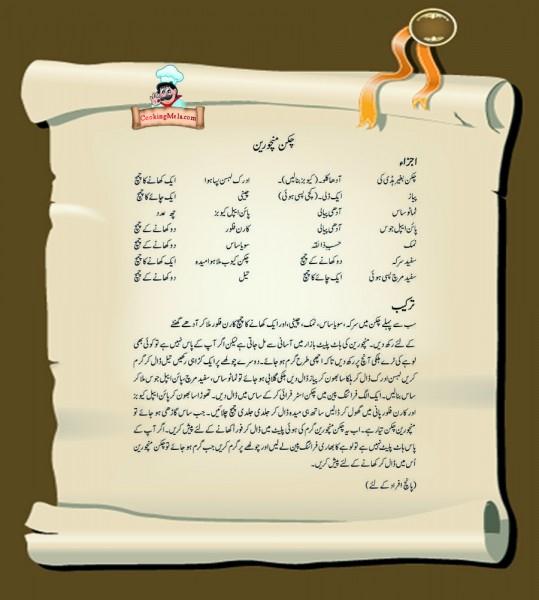 CookingMela.com
چکن منچورین
اجزاء
چکن بغیر ہڈی کی آدھا کلو۔(کیوبز بنالیں)۔ ادرک لہسن پسا ہوا ایک کھانے کا چمچ
پیاز ایک ڈلی۔(کچی پسی ہوئی) چینی ایک چائے کا چمچ
ٹماٹو ساس آدھی پیالی پائن ایپل کیوبز چھ عدد
پائن ایپل جوس آدھی پیالی کارن فلور دو کھانے کے چمچ
نمک حسب ذائقہ سویا ساس دو کھانے کے چمچ
سفید سرکہ دو کھانے کے چمچ چکن کیوب ملا ہوا میدہ ایک کھانے کا چمچ
سفید مرچ پسی ہوئی ایک چائے کا چمچ تیل دو کھانے کے چمچ
ترکیب
سب سے پہلے چکن میں سرکہ، سویا ساس، نمک، چینی، اور ایک کھانے کا چمچ کارن فلور ملا کر آدھے گھنٹے
کے لئے رکھ دیں۔ منچورین کی ہاٹ پلیٹ بازار میں آسانی سے مل جاتی ہے لیکن اگر آپ کے پاس نہیں ہے تو کوئی بھی
لوہے کی ٹرے ہلکی آنچ پر رکھ دیں تاکہ اچھی طرح گرم ہو جائے۔ دوسرے چولھے پر ایک کڑاہی رکھیں تیل ڈال کر گرم
کریں لہسن ادرک ڈال کر ہلکا سا بھون کر پیاز ڈال دیں ہلکی گلابی ہو جائے تو ٹماٹو ساس، سفید مرچ، پائن ایپل جوس ملا کر
ساس بنالیں۔ ایک الگ فرائنگ پین میں چکن اسٹر فرائی کر کے ساس میں ڈال دیں۔ تھوڑا سا بھون کر پائن ایپل کیوبز
اور کارن فلور پانی میں گھول کر ڈالیں ساتھ ہی میدہ ڈال کر جلدی جلدی چمچ چلائیں۔ جب ساس گاڑھی ہو جائے تو
منچورین چکن تیار ہے۔ اب یہ چکن منچورین گرم کی ہوئی پلیٹ میں ڈال کر فوراً کھانے کے لئے پیش کریں۔ اگر آپ کے
پاس ہاٹ پلیٹ نہیں ہے تو لوہے کا بھاری فرائنگ پین لے لیں اور چولھے پر گرم کریں جب گرم ہو جائے تو چکن منچورین
اُس میں ڈال کر کھانے کے لئے پیش کریں۔
(پانچ افراد کے لئے)